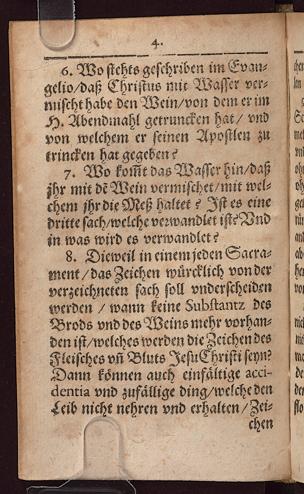 4.
6. Wo stehts geschriben im Evan-
gelio/daß Christus mit Wasser ver-
mischt habe den Wein/von dem er im
H. Abendmahl getruncken hat/ vnd
von welchem er seinen Apostlen zu
trincken hat gegeben?
7. Wo kom̃t das Wasser hin/daß
jhr mit dẽ Wein vermischet/mit wel-
chem jhr die Meß haltet? Ist es eine
dritte sach/welche verwandlet ist? Vnd
in was wird es verwandlet?
8. Dieweil in einem jeden Sacra-
ment/das Zeichen würcklich von der
verzeichneten sach soll vnderscheiden
werden/ wann keine Substantz des
Brods vnd des Weins mehr vorhan-
den ist/welches werden die Zeichen des
Fleisches vñ Bluts Jesu Christi seyn?
Dann können auch einfältige acci-
dentia vnd zufällige ding/welche den
Leib nicht nehren vnd erhalten/Zei-
chen